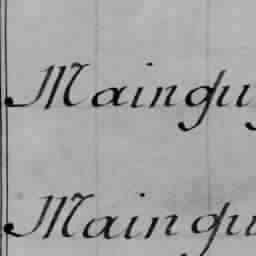 Maingu
Maingu